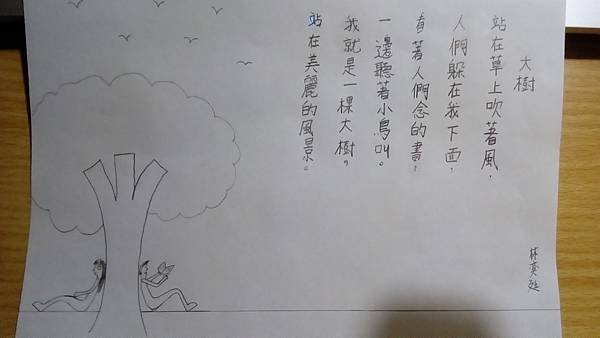 大樹
站在草上吹著風，
人們躲在我下面，
看著人們念的書，
一邊聽著小鳥叫。
我就是一棵大樹。
站在美麗的風景。
林